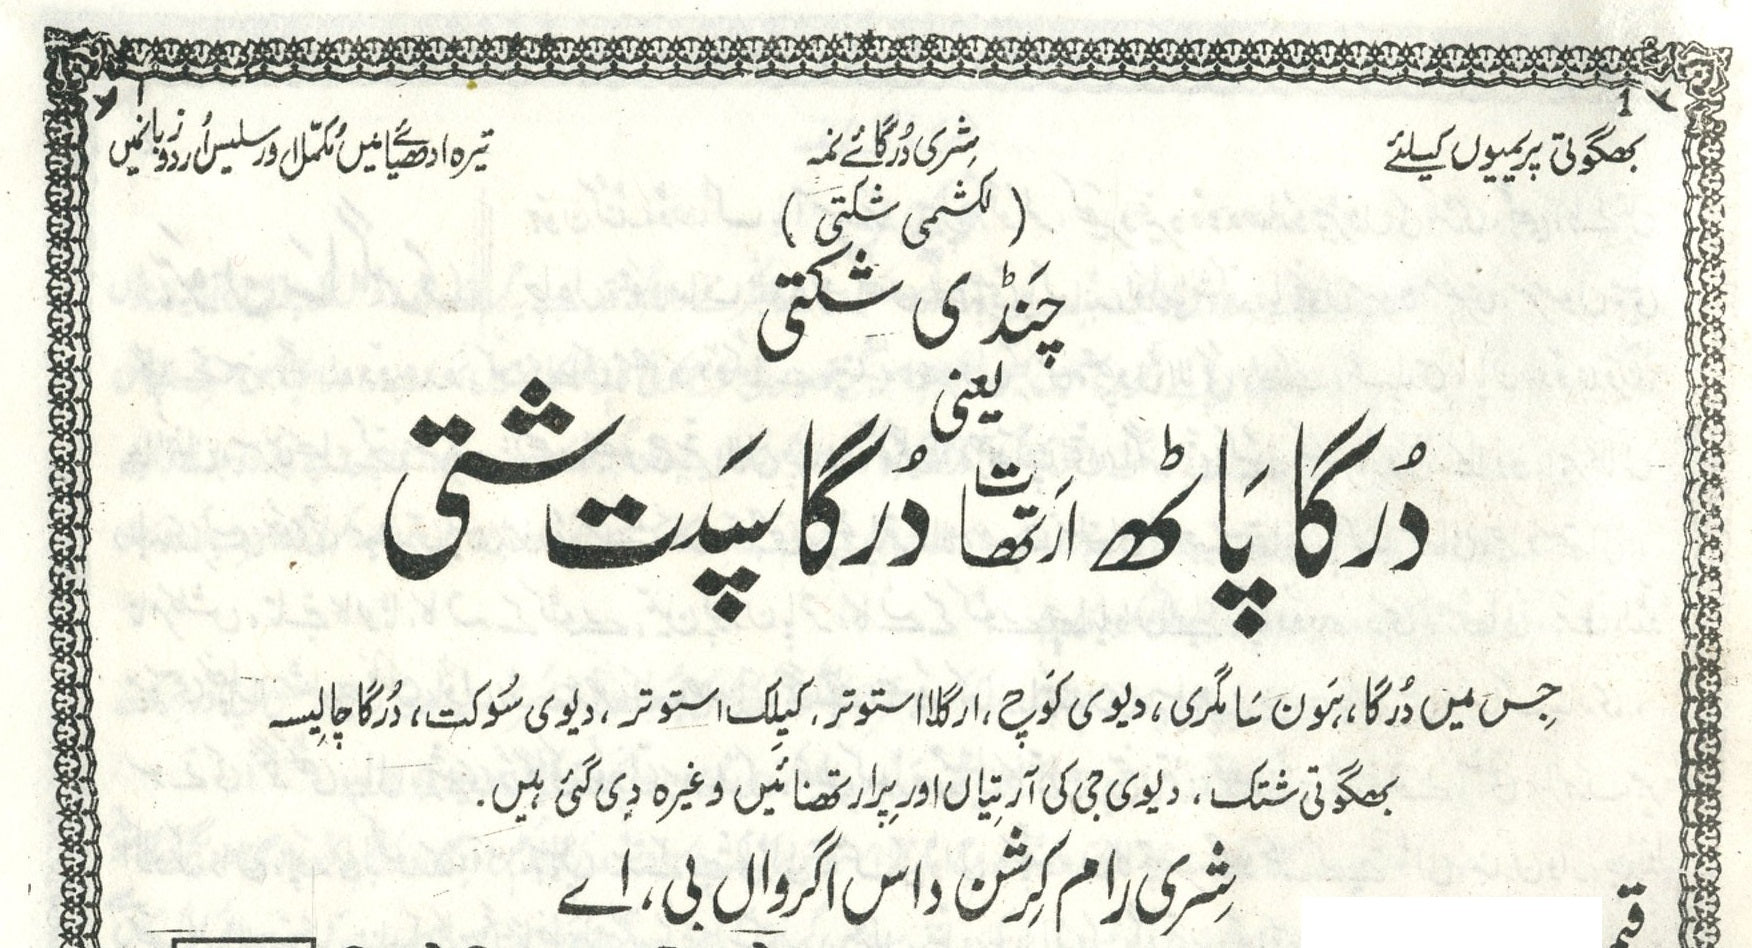 1
بھگوتی پریمیوں کیلئے
شِری دُرگائے نمہ
تیرہ ادھیائے میں مُکمّل اور سلیس اُردو زبان میں
( لکشمی شکتی )
چَنڈی شکتی
یعنی
دُرگا پَاٹھ اَرتھات دُرگا سپَت شتی
جِس میں دُرگا، ہَون سَامگری، دیوی کَوچ، ارگلا استوتر، کیلِک استوتر، دیوی سُوکت، دُرگا چالِیسہ
بھگوتی شتک، دیوی جی کی آرتِیاں اور پرارتھنائیں وغیرہ دِی گئی ہیں۔
شِری رام کِرشن داس اگروال بی، اے